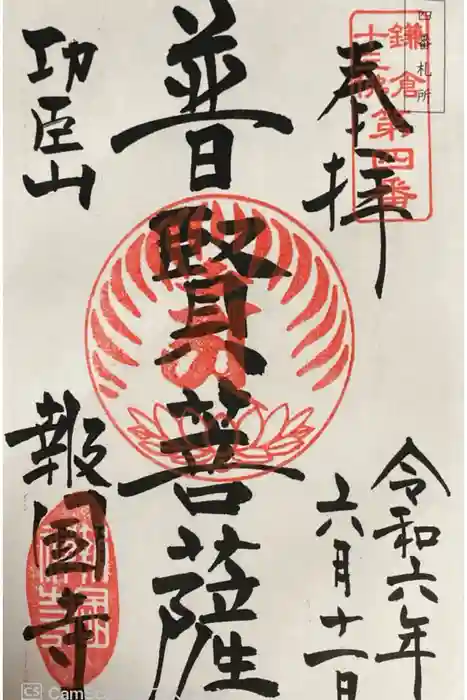 四番札所
鎌倉
十三佛
第四番
奉拝
令和六年
六月十一日
普賢菩薩
功臣山
報国寺
CS CamSc